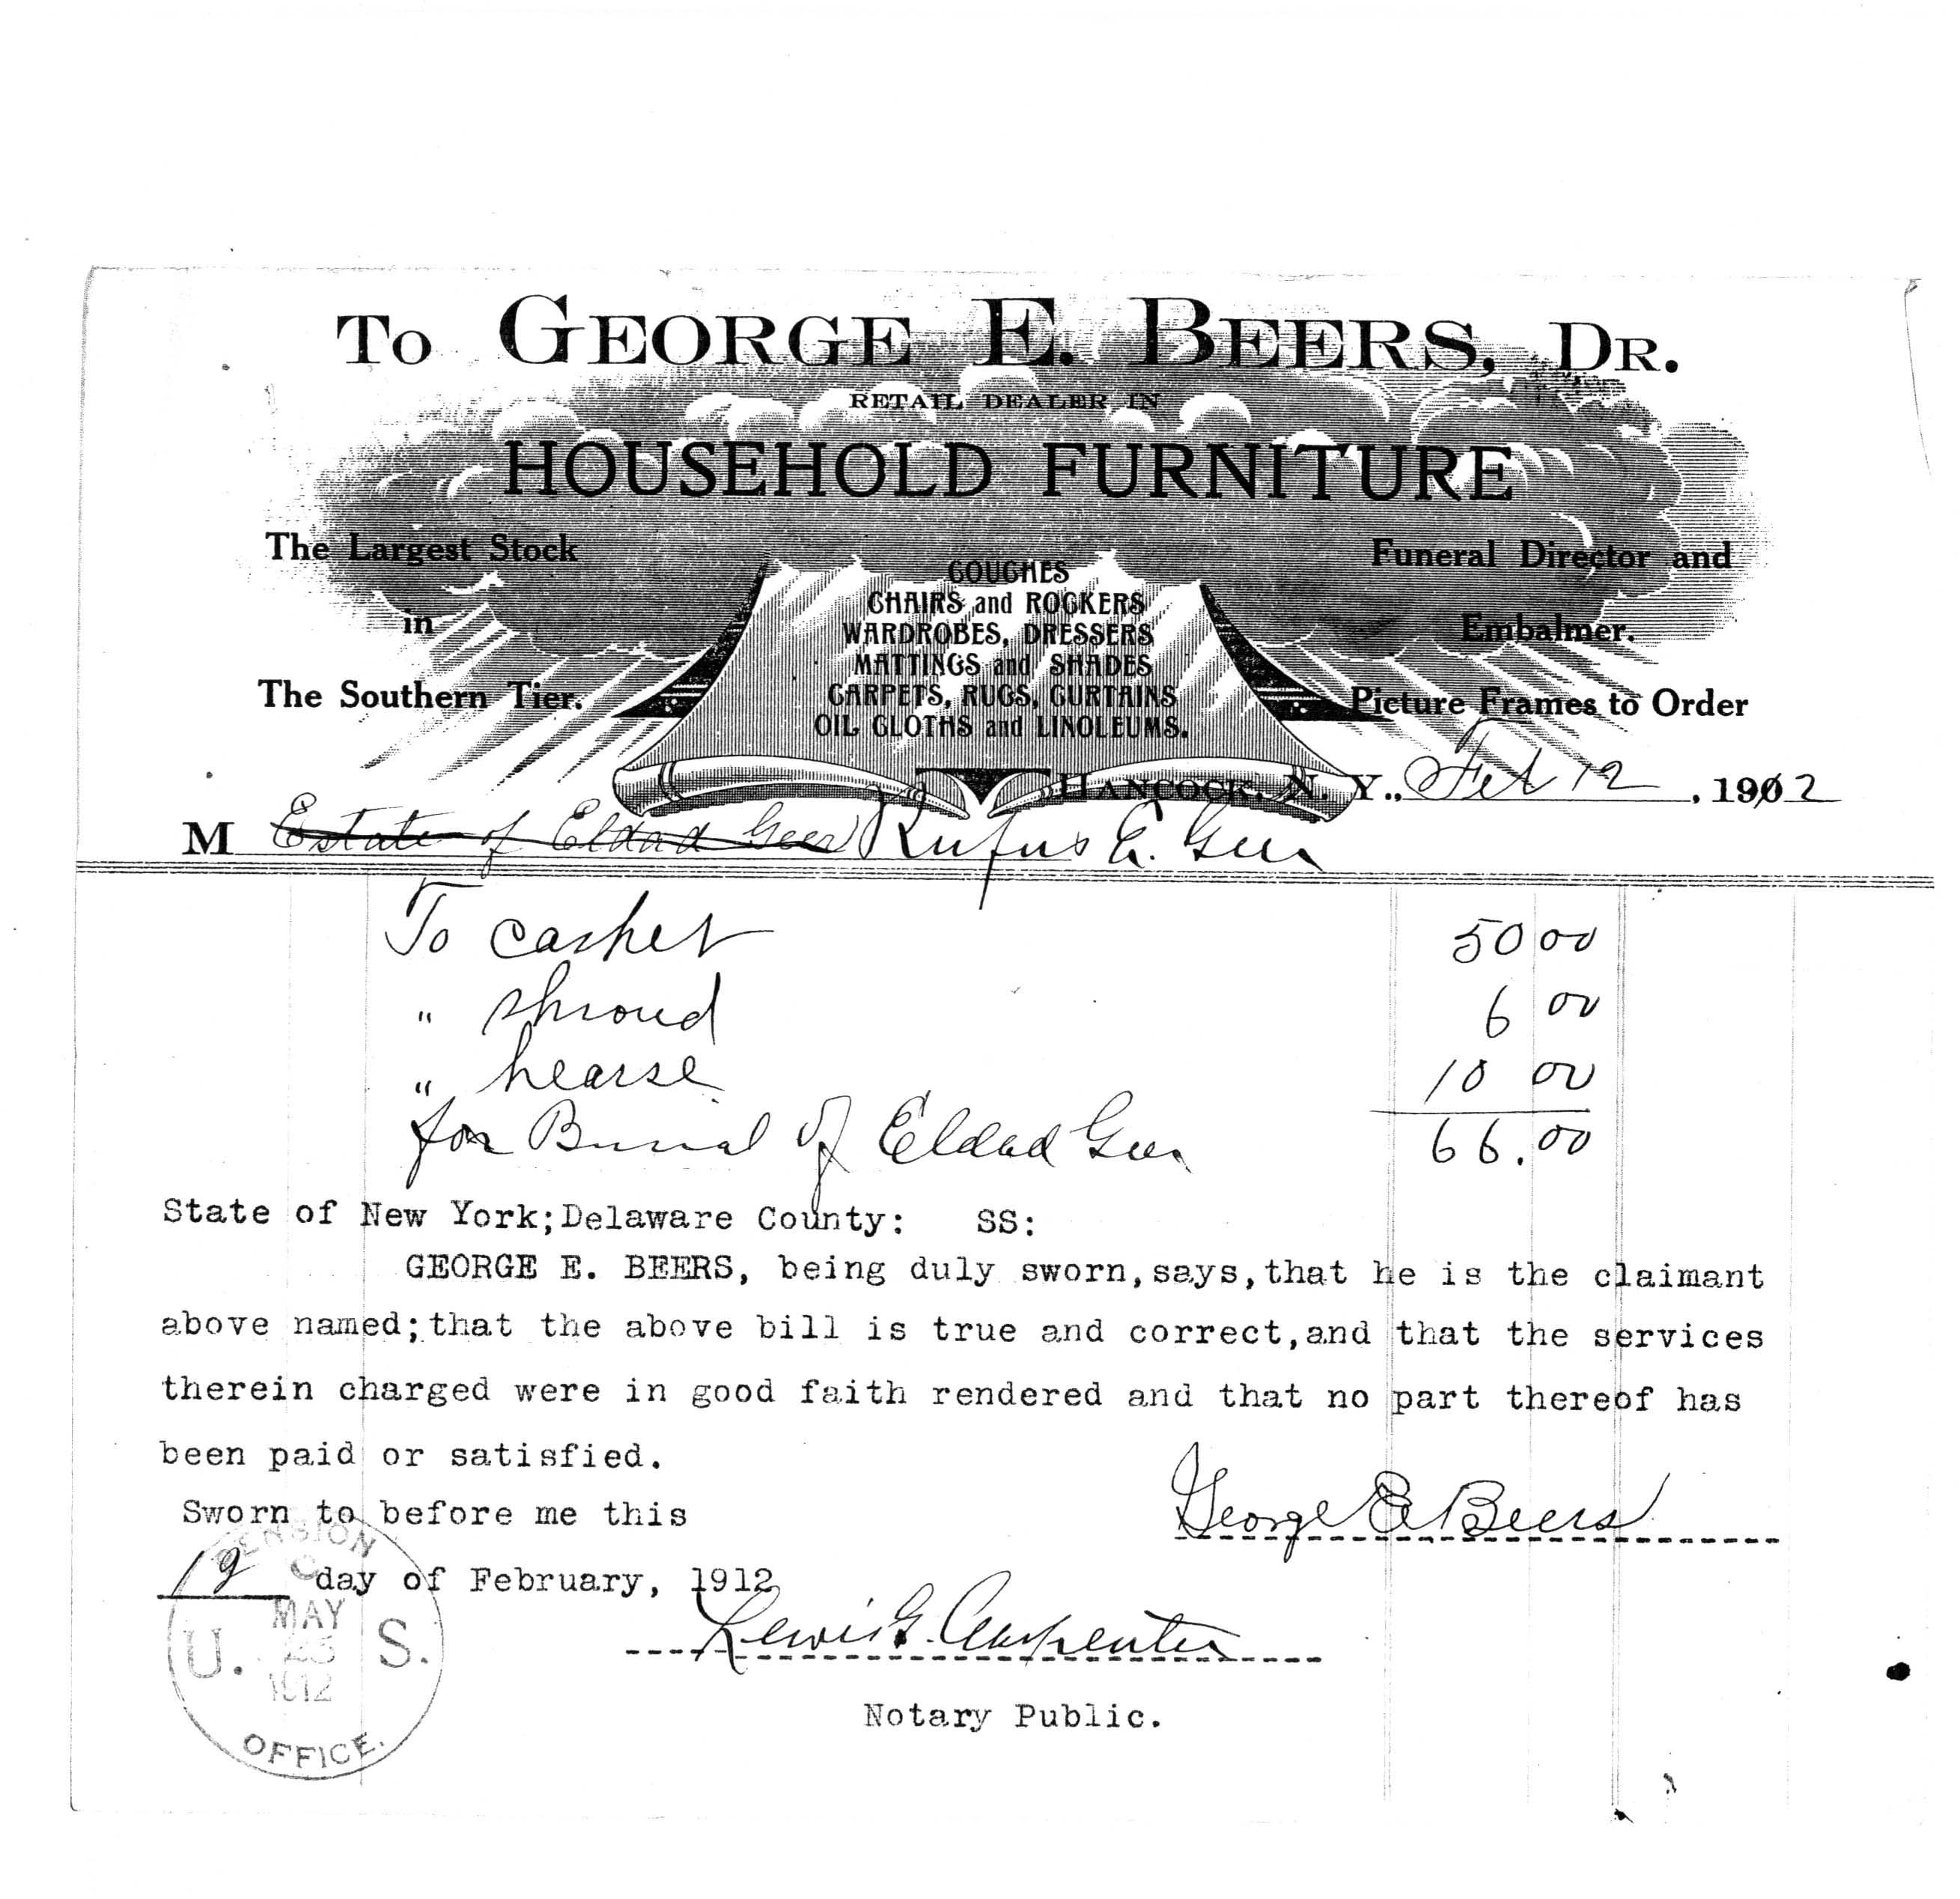 To GEORGE E. BEERS, DR.
RETAIL DEALER IN
HOUSEHOLD FURNITURE
The Largest Stock
in
The Southern Tier.
COUCHES
CHAIRS and ROCKERS
WARDROBES, DRESSERS
MATTINGS and SHADES
CARPETS, RUGS, CURTAINS
OIL CLOTHS and LINOLEUMS.
Funeral Director and
Embalmer.
Picture Frames to Order
HANCOCK, N. Y., Feb 12, 1912
M Estate of Eldad Geer Rufus E. Geer
To casket 50 00
" shroud 6 00
" hearse 10 00
for Burial of Eldad Geer 66.00
State of New York;Delaware County: SS:
GEORGE E. BEERS, being duly sworn,says,that he is the claimant
above named;that the above bill is true and correct,and that the services
therein charged were in good faith rendered and that no part thereof has
been paid or satisfied.
Sworn to before me this
George E Beers
12 day of February, 1912
Lewis G. Carpenter
Notary Public.
PENSION
MAY
U. 25 S.
1912
OFFICE.